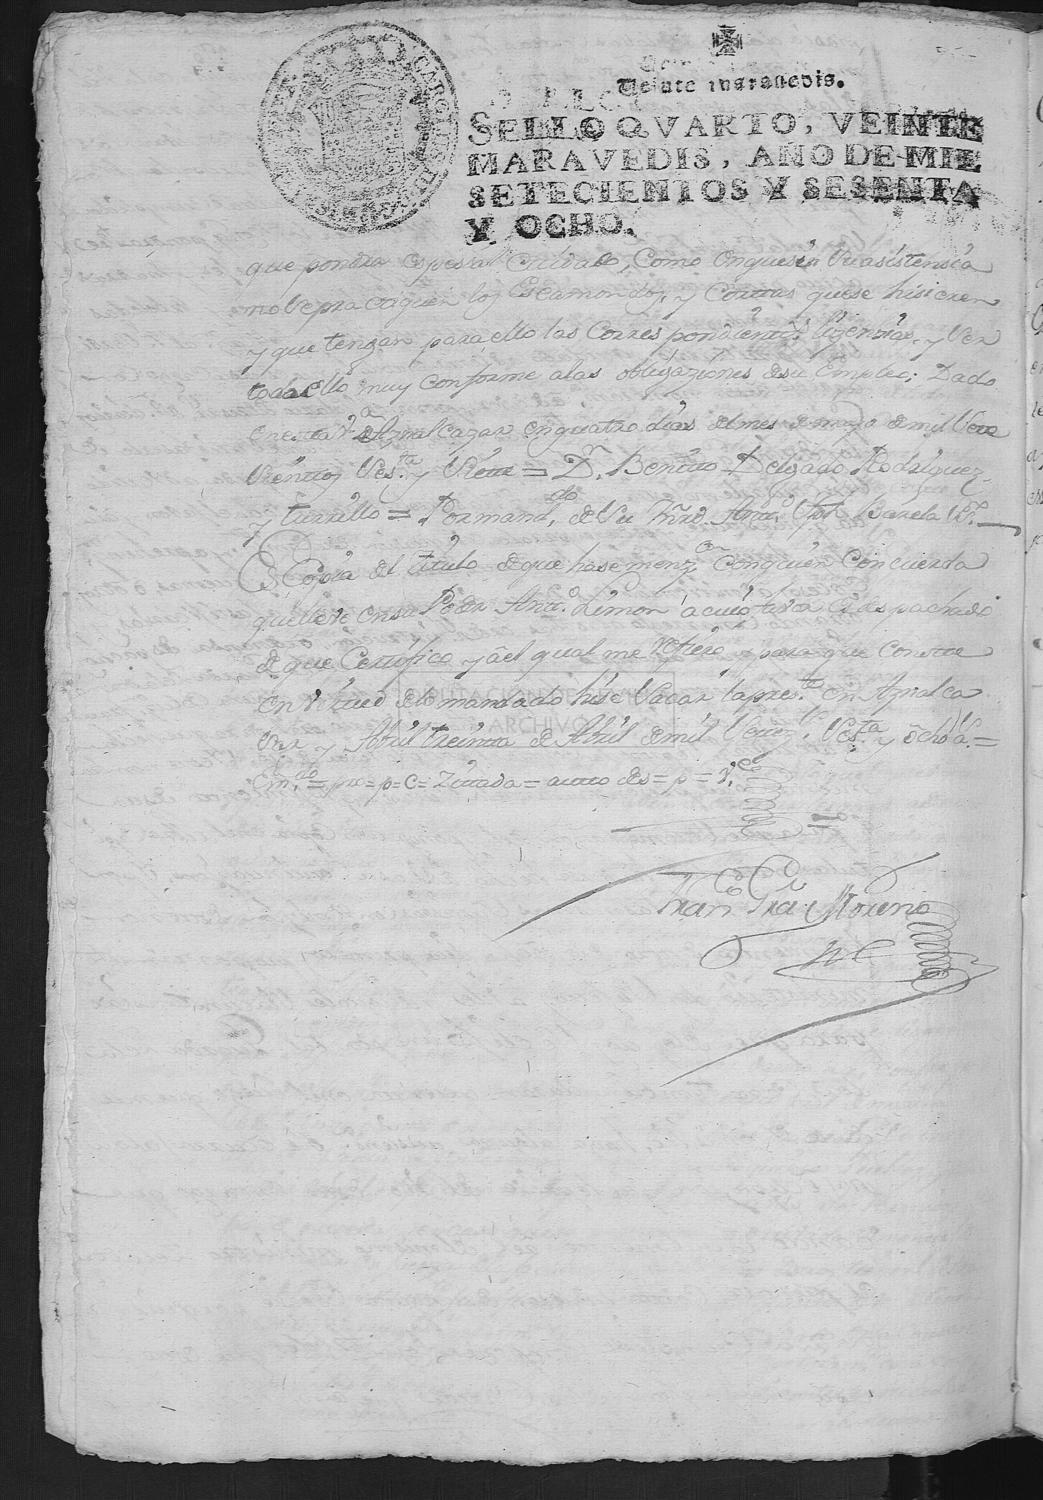 Veinte maravedis.
SELLO QVARTO, VEINTE
MARAVEDIS, AÑO DE MIL
SETECIENTOS Y SESENTA
Y OCHO.
que pondra espesial Cuidado, Como Enque sin su asistensia
no se practiquen los Escamondos, y Cortas que se hisieren
y que tengan para ello las Correspondientes lizensias, y ser
todo ello muy conforme a las obligaziones de su Empleo; Dado
en esta V.ª de Aznalcazar en quatro dias del mes de mayo de mil sete
sientos ses.ta y siete = D. Benito Delgado Rodriguez
y turrillo = Por mand.do de su mrd. Ant.º Barela
Es Copia del titulo de que hase menz.on Con quien Concuerda
que lleve en su Poder Ant.º Limon a cuio favor es despachado
de que Certifico y a el qual me refiero y para que Conste
en virtud de lo mandado hise sacar la pres.te en Aznalca
zar y Abril treinta de Abril de mil setez.s ses.ta y ocho a.s =
Em.do = pre = p = c = Zitada = auto des = p = v.e
Fran.co Gra. Moreno
DIPUTACIÓN DE
ARCHIVO